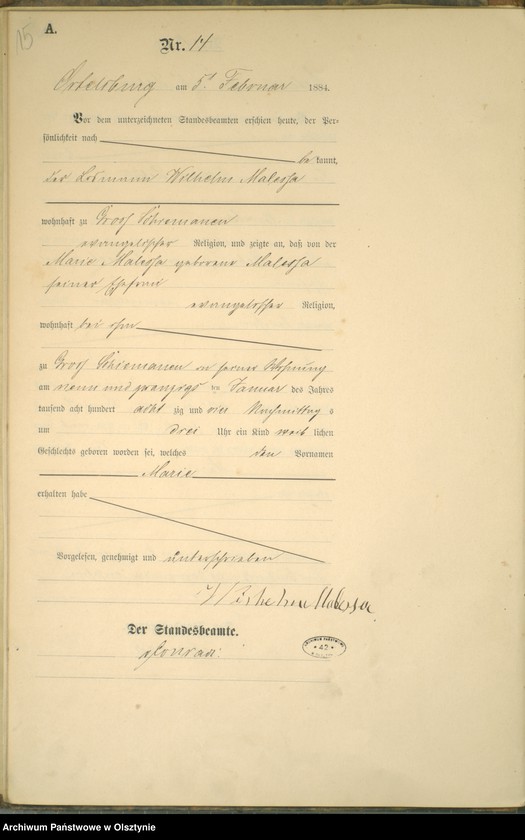 15
A.
Nr. 14
Ortelsburg am 5t Februar 1884.
Vor dem unterzeichneten Standesbeamten erschien heute, der Per=
sönlichkeit nach
be kannt,
der Losmann Wilhelm Malessa
wohnhaft zu Groß Schiemanen
evangelischer Religion, und zeigte an, daß von der
Marie Malessa geborene Malessa
seiner Ehefrau
evangelischer Religion,
wohnhaft bei ihm
zu Groß Schiemanen in seiner Wohnung
am neun und zwanzigsten Januar des Jahres
tausend acht hundert acht zig und vier Nachmittag s
um drei Uhr ein Kind weib lichen
Geschlechts geboren worden sei, welches den Vornamen
Marie
erhalten habe
Vorgelesen, genehmigt und unterschrieben
Wilhelm Malessa
Der Standesbeamte.
42
Archiwum Państwowe w Olsztynie